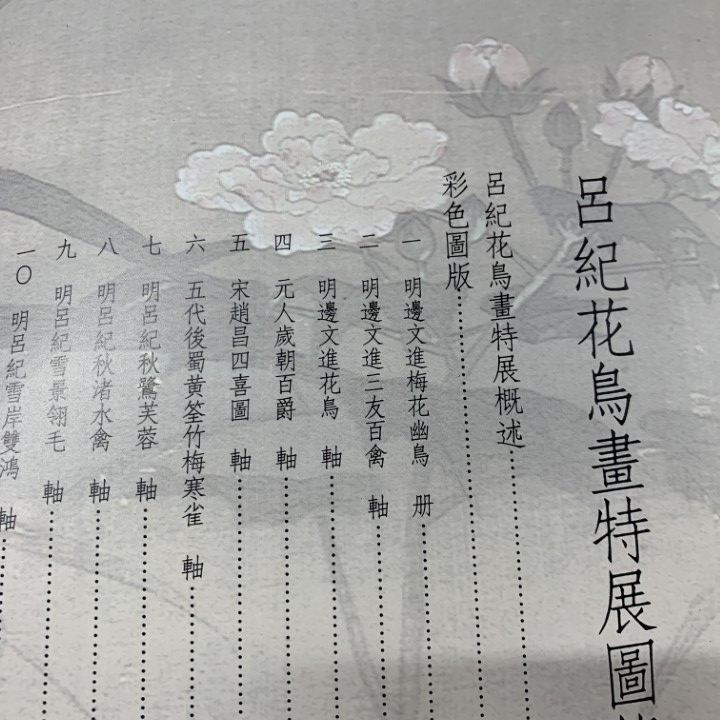 呂紀花鳥畫特展圖
呂紀花鳥畫特展概述
彩色圖版
一 明邊文進梅花幽鳥 册
二 明邊文進三友百禽 軸
三 明邊文進花鳥 軸
四 元人歲朝百爵 軸
五 宋趙昌四喜圖 軸
六 五代後蜀黃筌竹梅寒雀 軸
七 明呂紀秋鷺芙蓉 軸
八 明呂紀秋渚水禽 軸
九 明呂紀雪景翎毛 軸
一〇 明呂紀雪岸雙鴻 軸